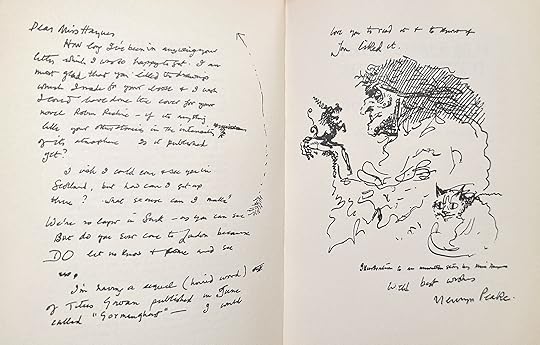 Dear Miss Haynes
How long I've been in answering your
letter which I was so happy to get. I am
most glad that you liked the drawings
which I made for your book & I wish
I could have done the cover for your
novel Robin Ritchie – if it's anything
like your other stories in the intensity
of its atmosphere Is it published
yet?
I wish I could come & see you in
Scotland, but how can I get up
there? what excuse can I make?
We're no longer in Sark – as you can see
But do you ever come to London because
DO let us know & come and see
us.
I'm having a sequel (horrid word)
of Titus Groan published in June
called "Gormenghast" – I would
love you to read it & to know if
you liked it.
Illustration to an unwritten story by Miss Haynes
With best wishes
Mervyn Peake.